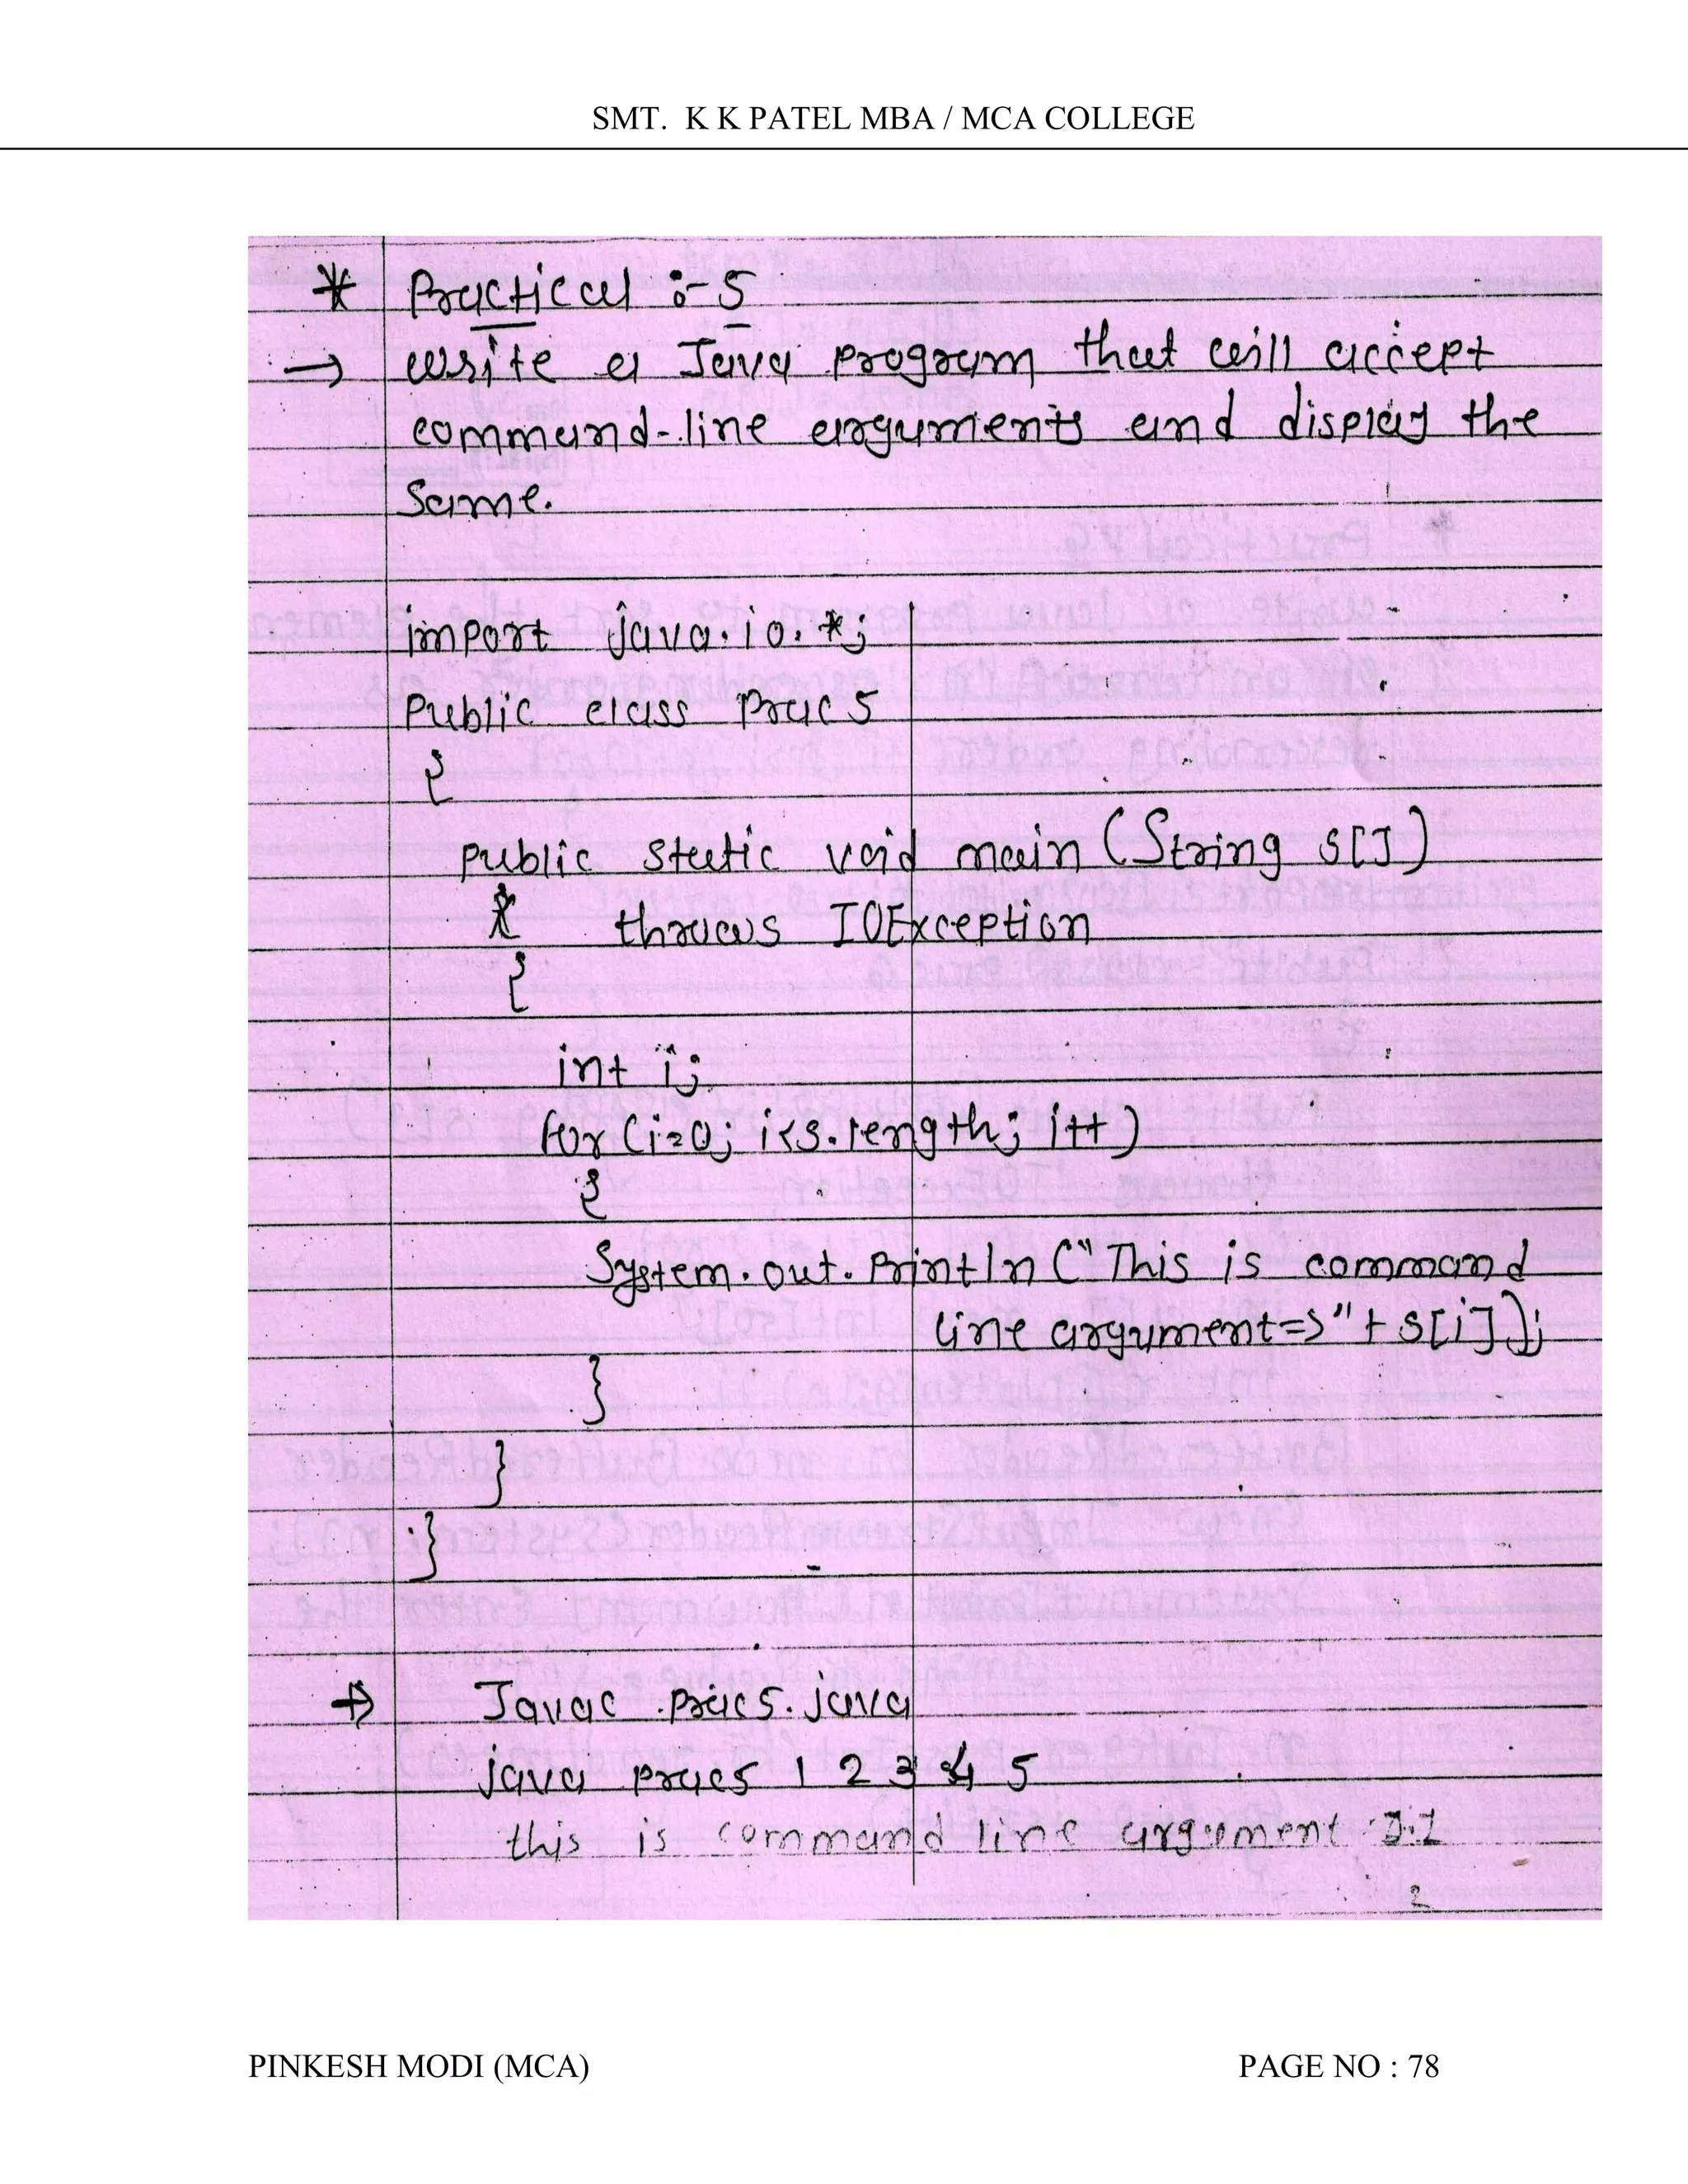 SMT. K K PATEL MBA / MCA COLLEGE
* Practical :- 5
→ write a Java program that will accept
command-line arguments and display the
same.
import java.io.*;
Public class Prac5
{
public static void main (String s[])
throws IOException
{
int i;
for (i=0; i<s.length; i++)
{
System.out.Println ("This is command
line argument=>"+ s[i]);
}
}
}
→ Javac prac5.java
java prac5 1 2 3 4 5
this is command line argument
2
PINKESH MODI (MCA) PAGE NO : 78